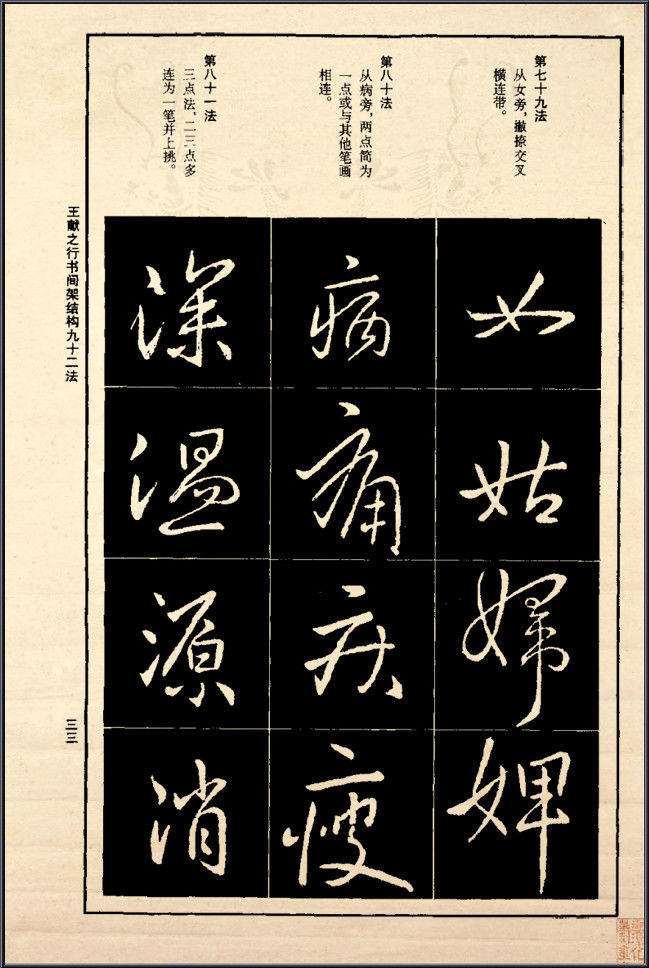 第七十九法
从女旁，撇捺交叉
横连带。
第八十法
从病旁，两点简为
一点或与其他笔画
相连。
第八十一法
三点法，二三点多
连为一笔并上挑。
女
姑
婦
婢
病
痛
疾
瘦
深
温
源
消
王献之行书间架结构九十二法
三三